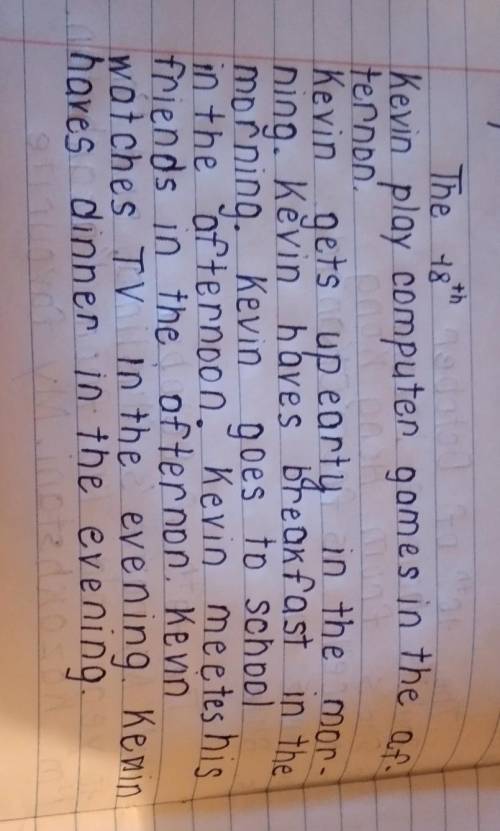 The 18th
Kevin play computer games in the af-
ternon.
Kevin gets up earty in the mor-
ning. Kevin haves breakfast in the
morning. Kevin goes to school
in the afternoon. Kevin meetes his
friends in the afternon. Kevin
watches TV in the evening. Kevin
haves dinner in the evening.